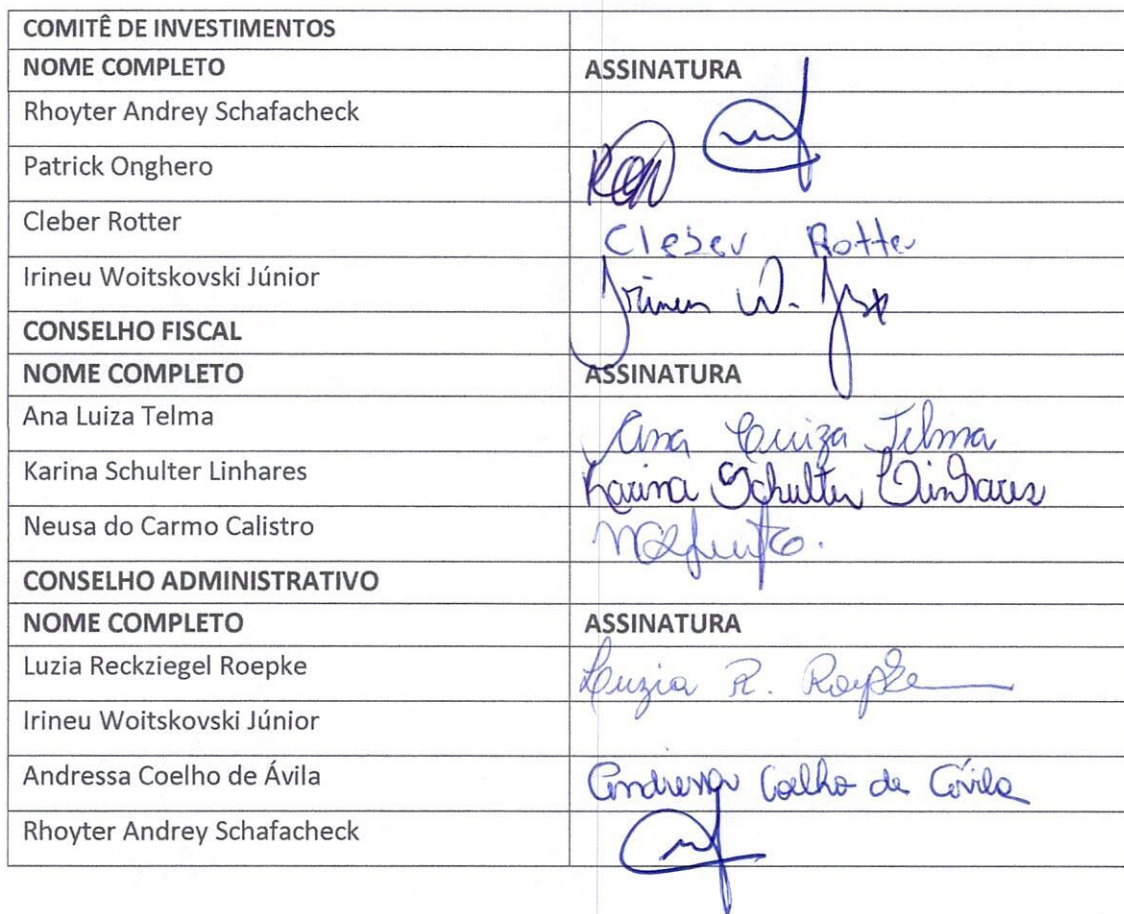 COMITÊ DE INVESTIMENTOS
NOME COMPLETO ASSINATURA
Rhoyter Andrey Schafacheck
Patrick Onghero
Cleber Rotter Cleber Rotter
Irineu Woitskovski Júnior Irineu W. Jr
CONSELHO FISCAL
NOME COMPLETO ASSINATURA
Ana Luiza Telma Ana Luiza Telma
Karina Schulter Linhares Karina Schulter Linhares
Neusa do Carmo Calistro
CONSELHO ADMINISTRATIVO
NOME COMPLETO ASSINATURA
Luzia Reckziegel Roepke Luzia R. Roepke
Irineu Woitskovski Júnior
Andressa Coelho de Ávila Andressa Coelho de Ávila
Rhoyter Andrey Schafacheck